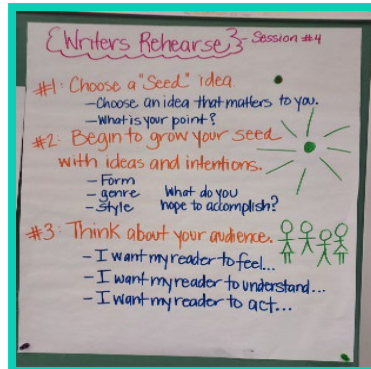 {Writers Rehearse} - Session #4
#1: Choose a "Seed" idea
- Choose an idea that matters to you.
- What is your point?
#2: Begin to grow your seed
with ideas and intentions.
- Form
- genre What do you
- style hope to accomplish?
#3: Think about your audience.
- I want my reader to feel...
- I want my reader to understand...
- I want my reader to act...